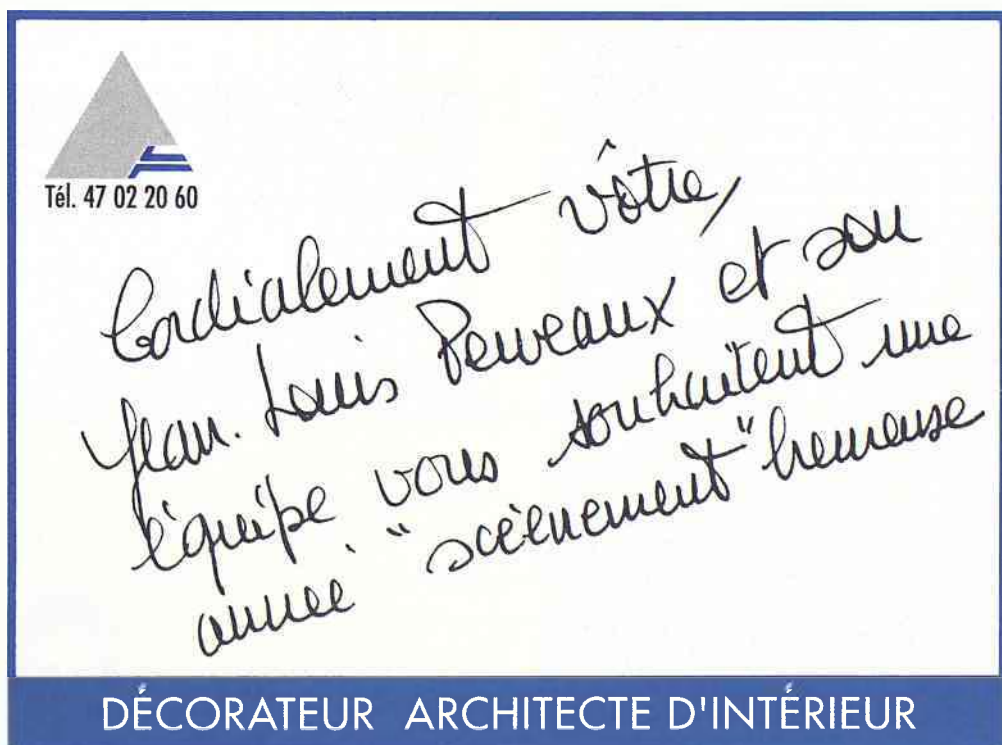 Tél. 47 02 20 60
Cordialement vôtre,
Jean. Louis Perveaux et son
équipe vous souhaitent une
année "scéènement" heureuse
DÉCORATEUR ARCHITECTE D'INTÉRIEUR